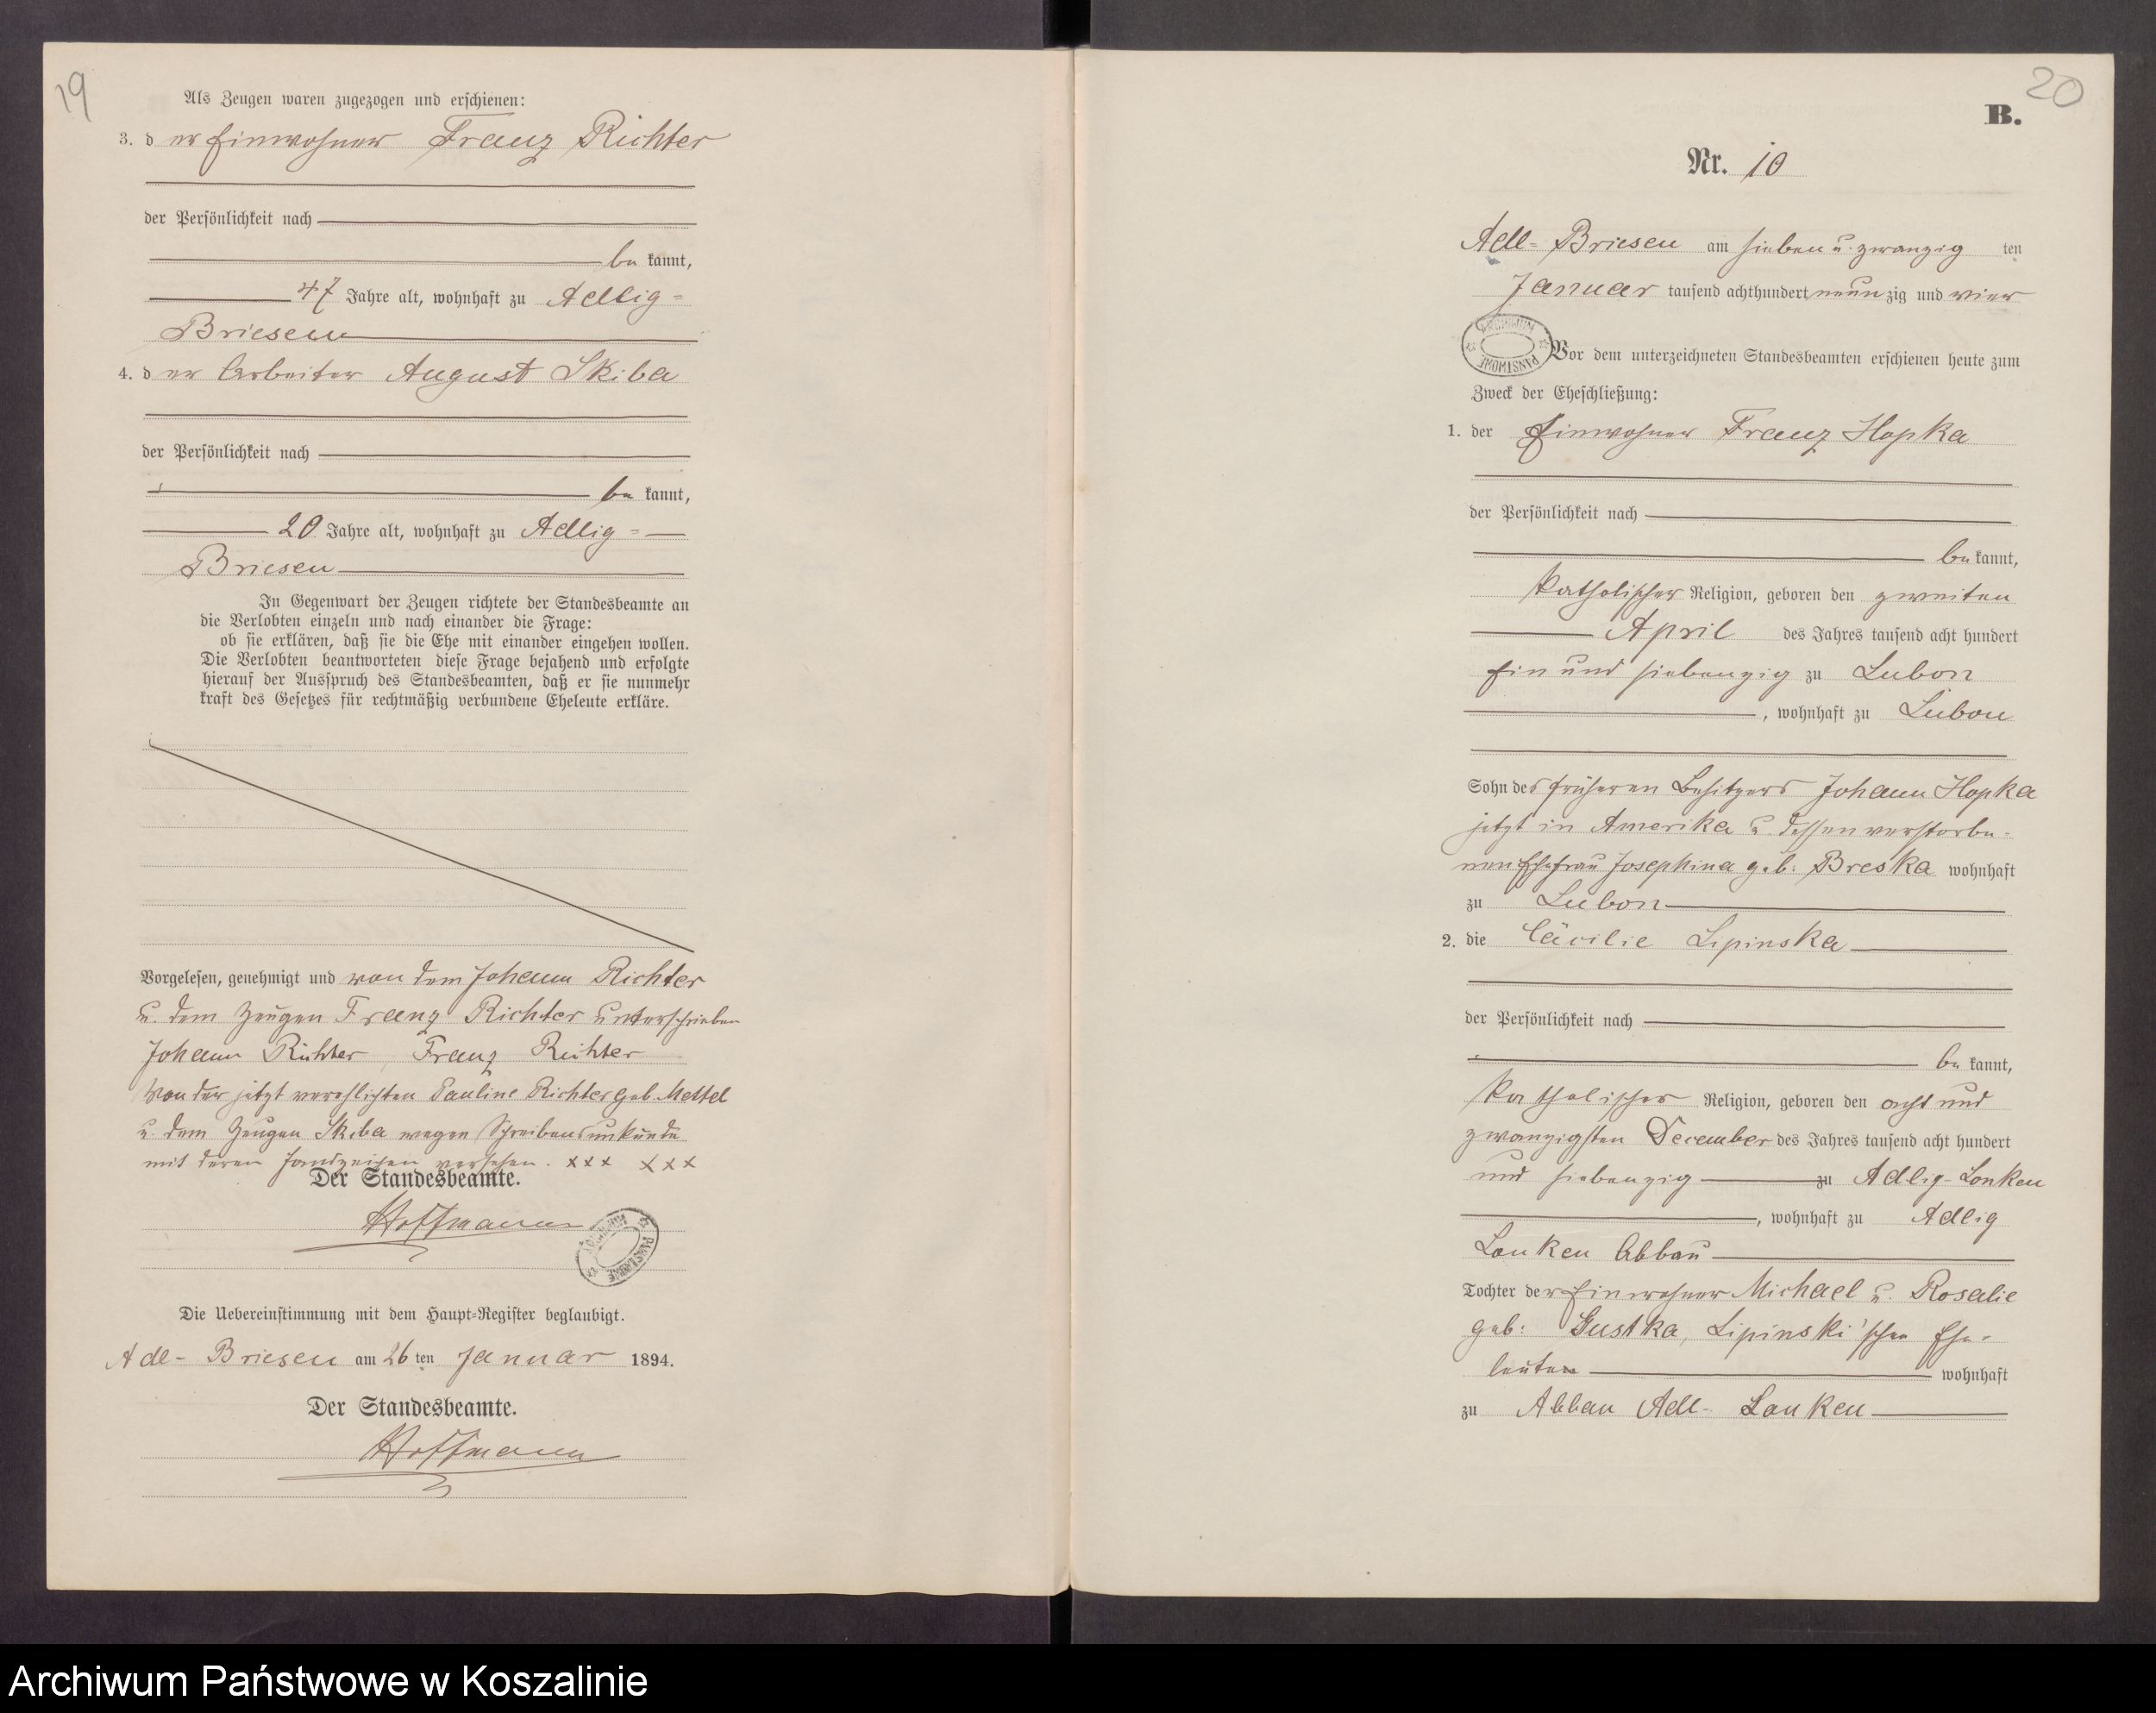 19
Als Zeugen waren zugezogen und erschienen:
3. d er Einwohner Franz Richter
der Persönlichkeit nach
be kannt,
47 Jahre alt, wohnhaft zu Adlig-
Briesen
4. d er Arbeiter August Skiba
der Persönlichkeit nach
be kannt,
20 Jahre alt, wohnhaft zu Adlig-
Briesen
In Gegenwart der Zeugen richtete der Standesbeamte an
die Verlobten einzeln und nach einander die Frage:
ob sie erklären, daß sie die Ehe mit einander eingehen wollen.
Die Verlobten beantworteten diese Frage bejahend und erfolgte
hierauf der Ausspruch des Standesbeamten, daß er sie nunmehr
kraft des Gesetzes für rechtmäßig verbundene Eheleute erkläre.
Vorgelesen, genehmigt und von dem Johann Richter
u. dem Zeugen Franz Richter unterschrieben
Johann Richter, Franz Richter
Von der jetzt verehlichten Pauline Richter geb. Mettel
u. dem Zeugen Skiba wegen Schreibensunkunde
mit deren Handzeichen versehen. xxx xxx
Der Standesbeamte.
Hoffmann
ARCHIWUM PAŃSTWOWE
Die Uebereinstimmung mit dem Haupt-Register beglaubigt.
Adl- Briesen am 26 ten Januar 1894.
Der Standesbeamte.
Hoffmann
20
B.
Nr. 10
Adl- Briesen am sieben u. zwanzig ten
Januar tausend achthundert neun zig und vier
ARCHIWUM PAŃSTWOWE
Vor dem unterzeichneten Standesbeamten erschienen heute zum
Zweck der Eheschließung:
1. der Einwohner Franz Hopka
der Persönlichkeit nach
be kannt,
katholischer Religion, geboren den zweiten
April des Jahres tausend acht hundert
ein und siebenzig zu Lubon
, wohnhaft zu Lubon
Sohn des früheren Besitzers Johann Hopka
jetzt in Amerika u. dessen verstorbe-
nen Ehefrau Josephina geb: Breska wohnhaft
zu Lubon
2. die Cäcilie Lipinska
der Persönlichkeit nach
be kannt,
katholischer Religion, geboren den acht und
zwanzigsten December des Jahres tausend acht hundert
und siebenzig zu Adlig- Lonken
, wohnhaft zu Adlig
Lonken Abbau
Tochter der Einwohner Michael u. Rosalie
geb: Gustka, Lipinski'schen Ehe-
leuten wohnhaft
zu Abbau Adl- Lonken
Archiwum Państwowe w Koszalinie